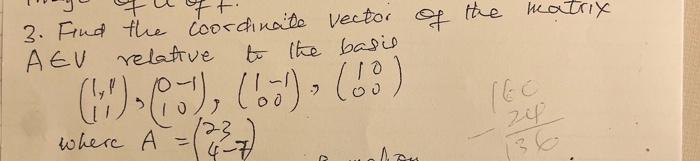 3. Find the coordinate vector of the matrix
A ∈ V relative to the basis
(1 1 / 1 1), (0 -1 / 1 0), (1 -1 / 0 0), (1 0 / 0 0)
where A = (2 3 / 4 -7)
160
24
- 136